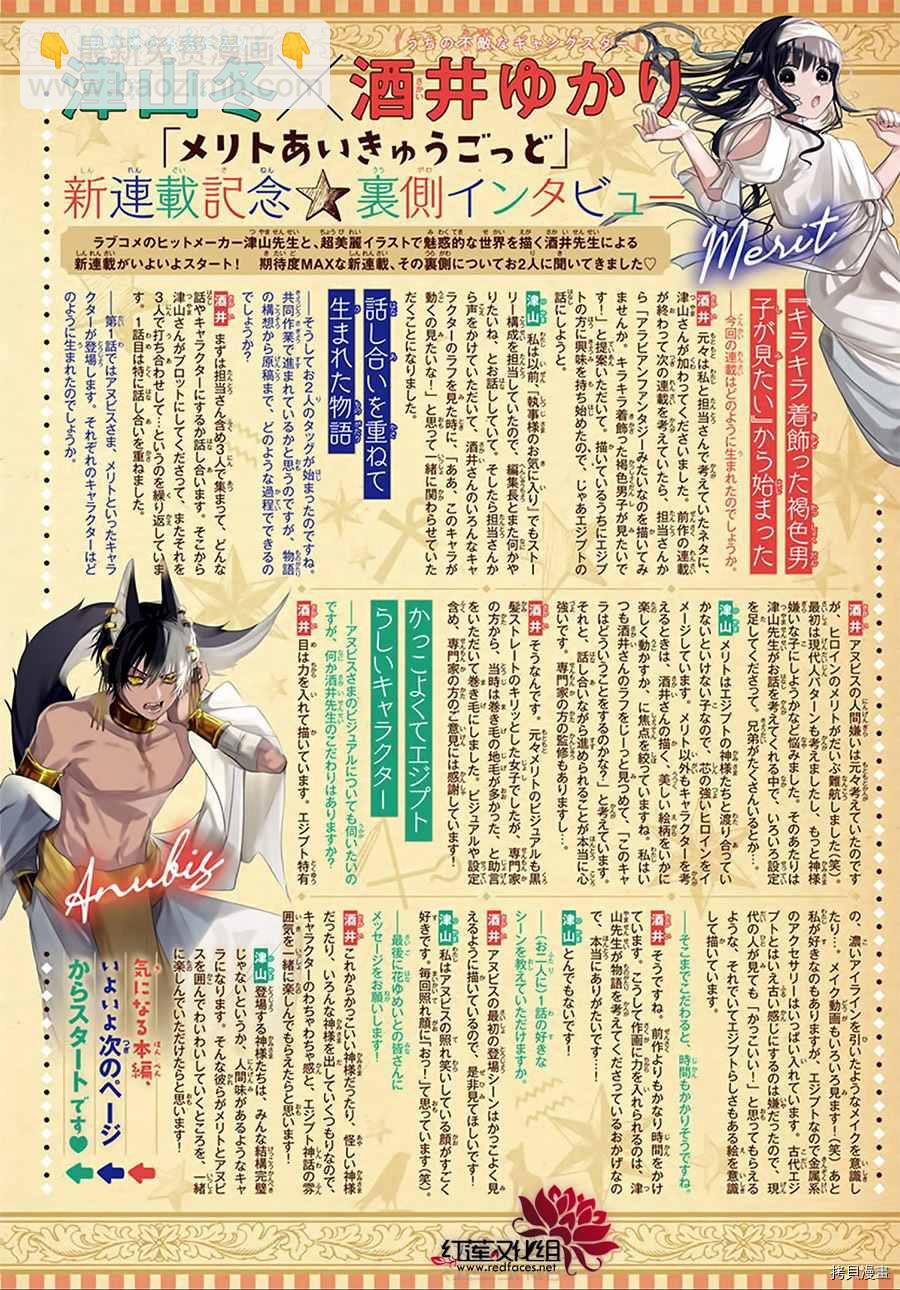 最新免费漫画
www.baozimh.com
『うちの不敵なギャングスター』
津山冬×酒井ゆかり
「メリトあいきゅうごっど」
新連載記念☆裏側インタビュー
ラブコメのヒットメーカー津山先生と、超美麗イラストで魅惑的な世界を描く酒井先生による
新連載がいよいよスタート! 期待度MAXな新連載、その裏側についてお2人に聞いてきました♡
Merit
『キラキラ着飾った褐色男
子が見たい』から始まった
――今回の連載はどのように生まれたのでしょうか。
酒井 元々は私と担当さんで考えていたネタに、
津山さんが加わってくださいました。前作の連載
が終わって次の連載を考えていたら、担当さんか
ら「アラビアンファンタジーみたいなのを描いてみ
ませんか。キラキラ着飾った褐色男子が見たいで
す!」と提案いただいて。描いているうちにエジプ
トの方に興味を持ち始めたので、じゃあエジプトの
話にしようと。
津山 私は以前、『執事様のお気に入り』でもストー
リー構成を担当していたので、編集長とまた何かや
りたいね、とお話ししていて。そしたら担当さんか
ら声をかけていただいて、酒井さんのいろんなキャ
ラクターのラフを見た時に、「ああ、このキャラが
動くの見たいな!」と思って一緒に関わらせていた
だくことになりました。
話し合いを重ねて
生まれた物語
――そうしてお2人のタッグが始まったのですね。
共同作業で進まれているかと思うのですが、物語
の構想から原稿まで、どのような過程でできるの
でしょうか?
酒井 まずは担当さん含め3人で集まって、どんな
話やキャラクターにするか話し合います。そこから
津山さんがプロットにしてくださって、またそれを
3人で打ち合わせして…というのを繰り返していま
す。1話目は特に話し合いを重ねました。
――第1話ではアヌビスさま、メリトといったキャラ
クターが登場します。それぞれのキャラクターはど
のように生まれたのでしょうか。
酒井 アヌビスの人間嫌いは元々考えていたのです
が、ヒロインのメリトがだいぶ難航しました(笑)。
最初は現代人パターンも考えましたし、もっと神様
嫌いな子にしようかなど悩みました。そのあたりは
津山先生がお話を考えてくれる中で、いろいろ設定
を足してくださって。兄弟がたくさんいるとか…。
津山 メリトはエジプトの神様たちと渡り合ってい
かないといけない子なので、芯の強いヒロインをイ
メージしています。メリト以外もキャラクターを考
えるときは、酒井さんの描く、美しい絵柄をいかに
楽しく動かすか、に焦点を絞っていますね。私はい
つも酒井さんのラフをじーっと見つめて、「このキャ
ラはどういうことをするのかな?」と考えています。
それと、話し合いながら進められることが本当に心
強いです。専門家の方の監修もありますし…。
酒井 そうなんです。元々メリトのビジュアルも黒
髪ストレートのキリッとした女子でしたが、専門家
の方から、当時は巻き毛の地毛が多かった、と助言
をいただいて巻き毛にしました。ビジュアルや設定
含め、専門家の方のご意見には感謝しています!
かっこよくてエジプト
らしいキャラクター
――アヌビスさまのビジュアルについても伺いたいの
ですが、何か酒井先生のこだわりはありますか?
酒井 目は力を入れて描いています。エジプト特有
の、濃いアイラインを引いたようなメイクを意識し
たり…。メイク動画もいろいろ見ます!(笑) あと
私が好きなのもありますが、エジプトなので金属系
のアクセサリーはいっぱい入れています。古代エジ
プトとはいえ古い感じにするのは嫌だったので、現
代の人が見ても「かっこいい!」と思ってもらえる
ような、それでいてエジプトらしさもある絵を意識
して描いています。
――そこまでこだわると、時間もかかりそうですね。
酒井 そうですね。前作よりもかなり時間をかけ
ています。こうして作画に力を入れられるのは、津
山先生が物語を考えてくださっているおかげなの
で、本当にありがたいです…!
津山 とんでもないです。
――(お二人に)1話の好きな
シーンを教えていただけますか。
酒井 アヌビスの最初の登場シーンはかっこよく見
えるように描いているので、是非見てほしいです!
津山 私はアヌビスの照れ笑いしている顔がすごく
好きです。毎回照れ顔に「おっ!」て思っています(笑)。
――最後に花ゆめいとの皆さんに
メッセージをお願いします!
酒井 これからかっこいい神様だったり、怪しい神様
だったり、いろんな神様を出していくつもりなので、
キャラクターのわちゃわちゃ感と、エジプト神話の雰
囲気を一緒に楽しんでもらえたらと思います!
津山 登場する神様たちは、みんな結構完璧
じゃないというか、人間味があるようなキャ
ラになります。そんな彼らがメリトとアヌビ
スを囲んでわいわいしていくところを、一緒
に楽しんでいただけたらと思います!
Anubis
気になる本編、
いよいよ次のページ
からスタートです♥
红莲汉化组
www.redfaces.net
拷貝漫畫